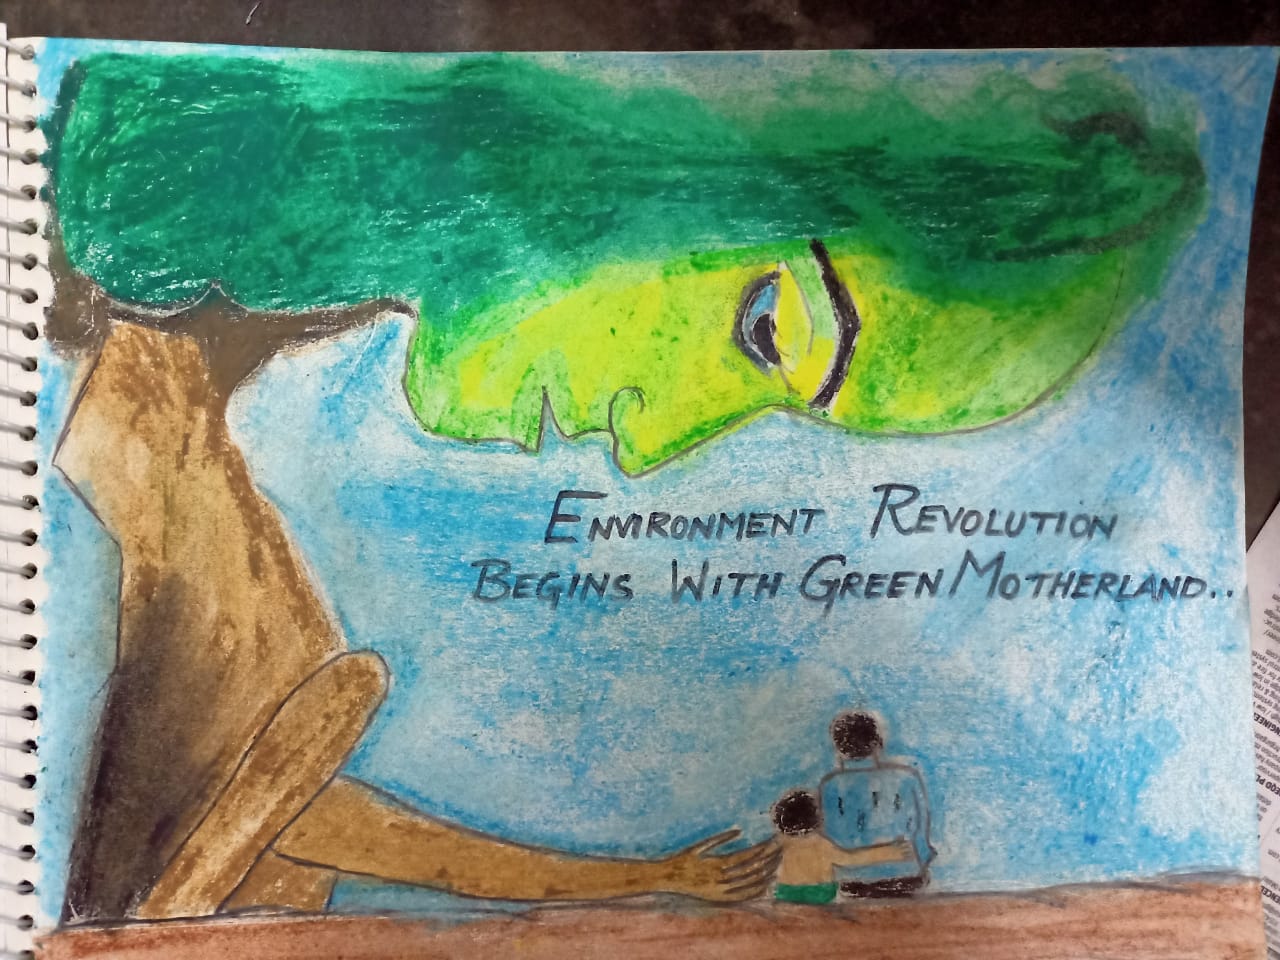 ENVIRONMENT REVOLUTION
BEGINS WITH GREEN MOTHERLAND..